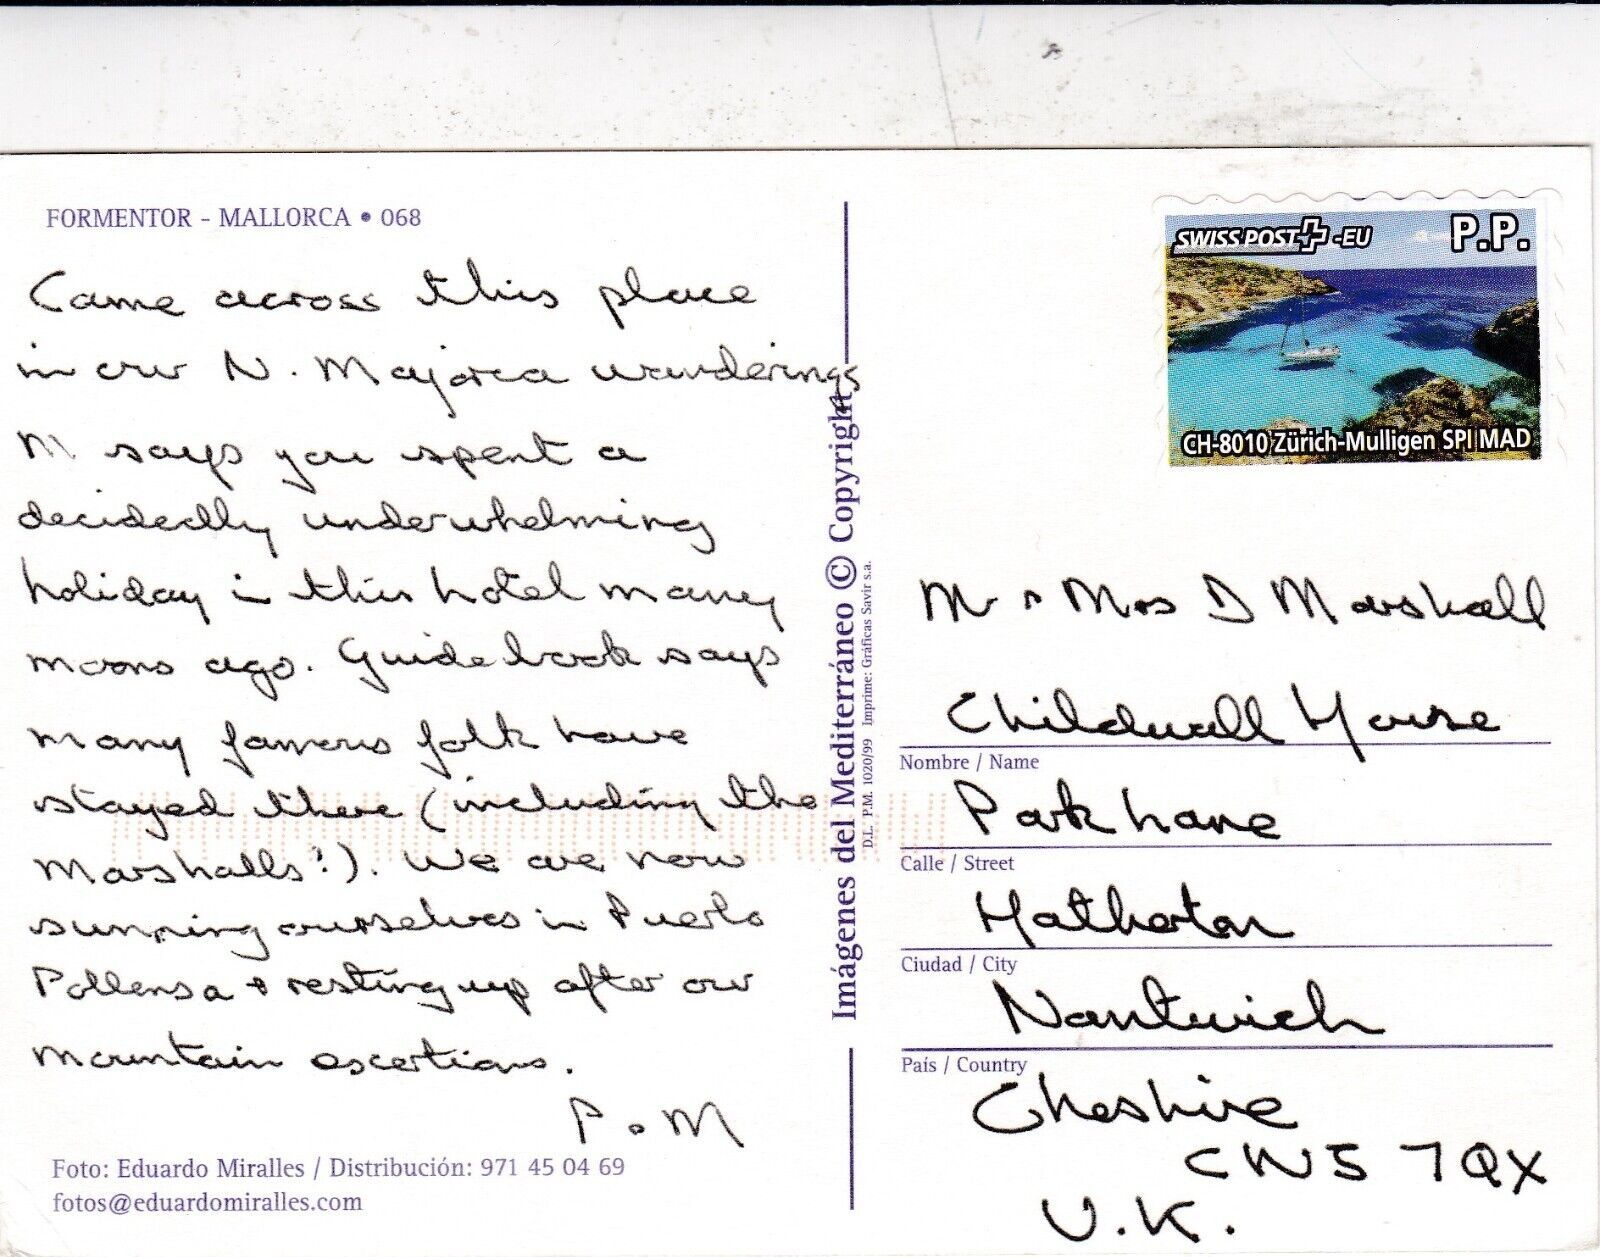 FORMENTOR - MALLORCA • 068
Came across this place
in our N. Majorca wanderings
M says you spent a
decidedly underwhelming
holiday in this hotel many
moons ago. Guidebook says
many famous folk have
stayed there (including the
Marshalls!). We are now
sunning ourselves in Puerto
Pollensa + resting up after our
mountain excertions.
P + M
Foto: Eduardo Miralles / Distribución: 971 45 04 69
fotos@eduardomiralles.com
Imágenes del Mediterráneo © Copyright
D.L. P.M. 1020/99 Imprime: Gráficas Savir s.a.
SWISS POST -EU P.P.
CH-8010 Zürich-Mulligen SPI MAD
Mr + Mrs D Marshall
Childwall House
Nombre / Name
Park Lane
Calle / Street
Hatherton
Ciudad / City
Nantwich
País / Country
Cheshire
CW5 7QX
U.K.